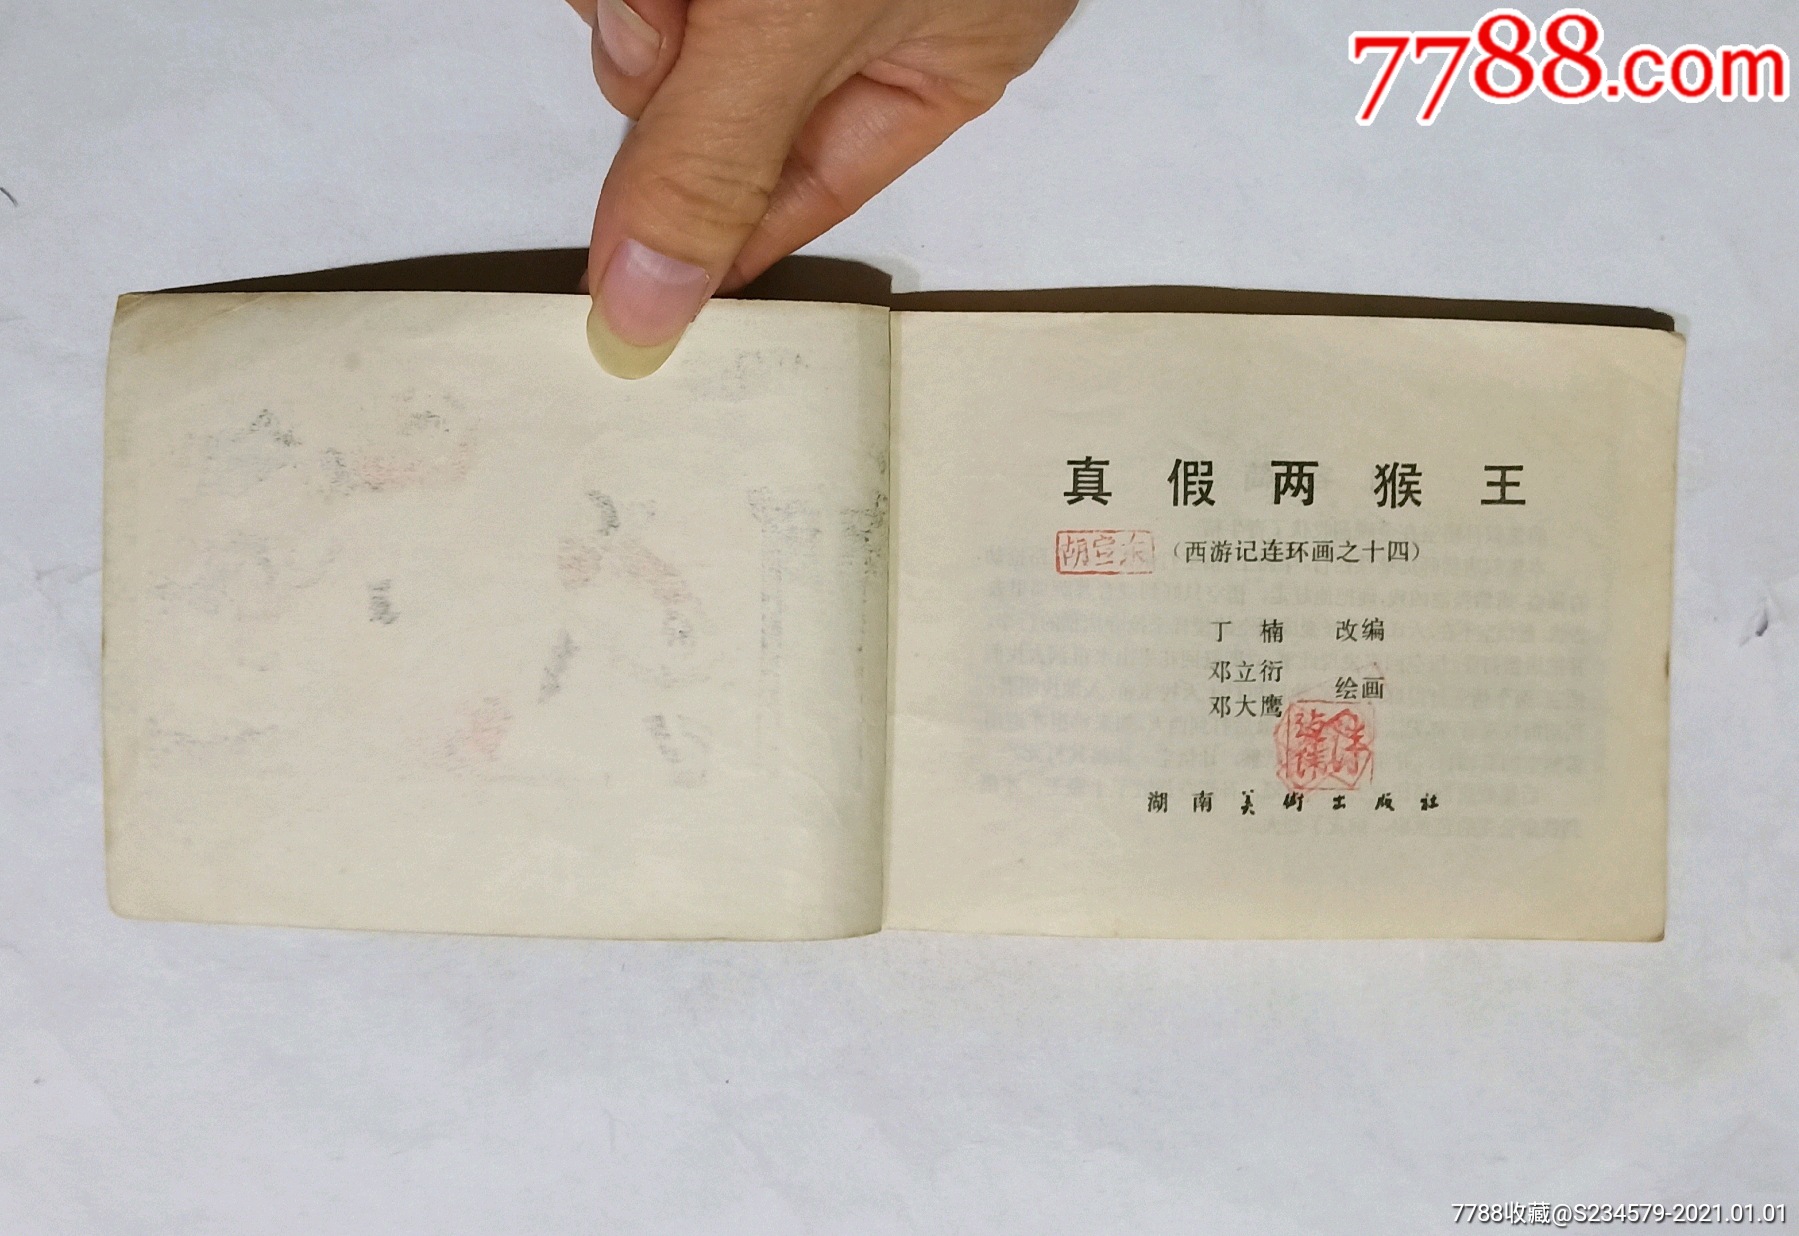 7788.com
真假两猴王
胡宣东
（西游记连环画之十四）
丁楠 改编
邓立衍
邓大鹰 绘画
湖南美术出版社
7788收藏@S234579-2021.01.01